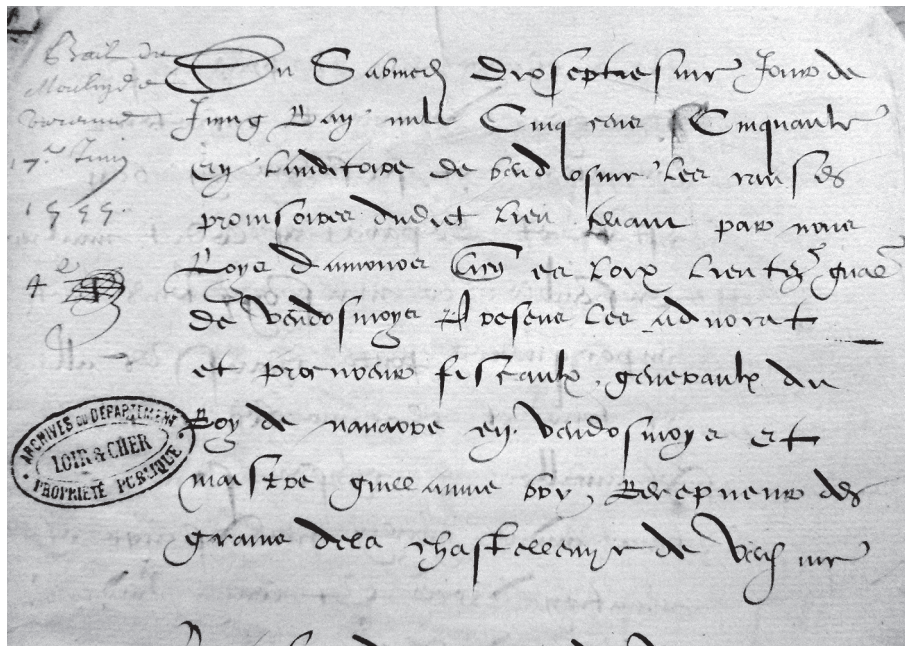 Bail du
Moulin de
17e Juin
4e
Du Samedi dixseptiesme Jour de
Juing L'an mil Cinq cens Cinquante
en lauditoire de les causes
provisoires dudict lieu tenant par nous
Loys es Loix
de vendosmoys Presens les advocat
et procureur fiscaulx generaulx du
Roy de navarre en vendosmoys et
maistre guillaume Recepveur des
grains dela chastellenye de
ARCHIVES DU DÉPARTEMENT
LOIR & CHER
PROPRIÉTÉ PUBLIQUE